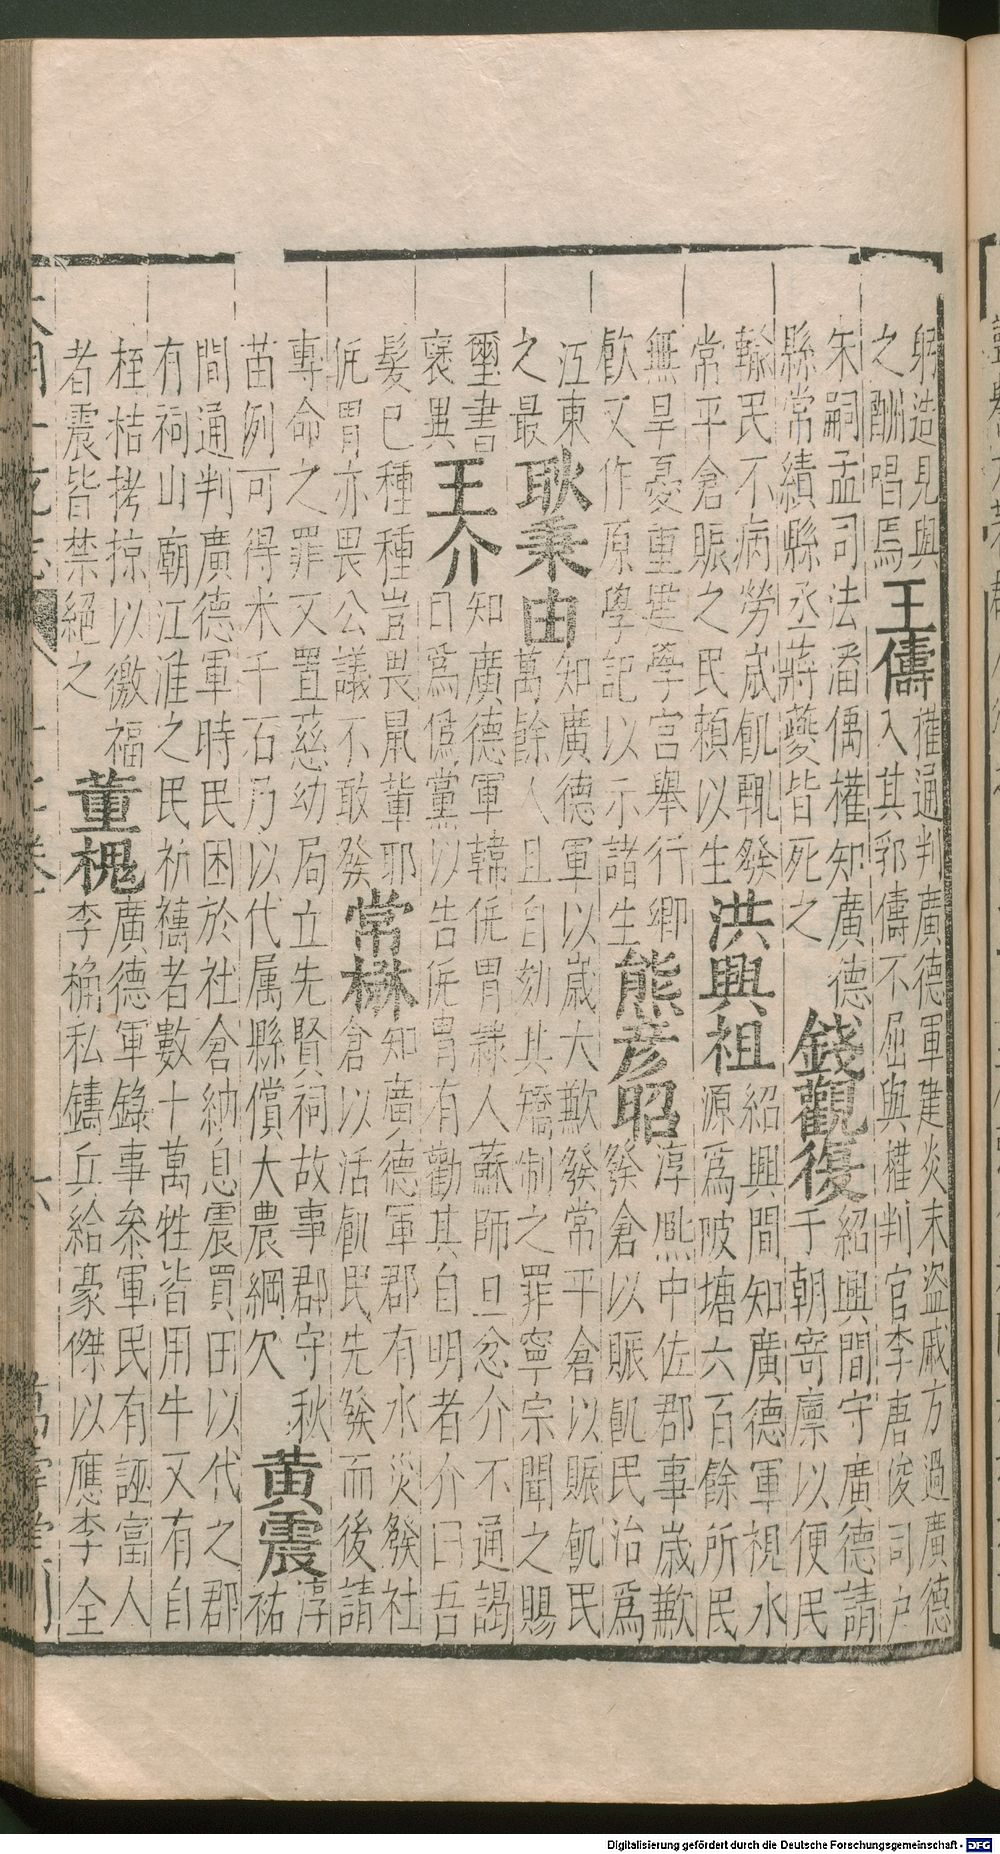 躬造見與
之酬唱焉
王儔
權通判廣德軍建炎末盜戚方過廣德
入其郛儔不屈與權判官李唐俊司户
朱嗣孟司法潘偶權知廣德
縣常績縣丞蔣夔皆死之
錢觀復
紹興間守廣德請
于朝寄廩以便民
輸民不病勞歲飢輙發
常平倉賑之民賴以生
洪興祖
紹興間知廣德軍視水
源爲陂塘六百餘所民
無旱憂重建學宮舉行鄉
飲又作原學記以示諸生
熊彦昭
淳熈中佐郡事歲歉
發倉以賑飢民治爲
江東
之最
耿秉由
知廣德軍以歲大歉發常平倉以賑飢民
萬餘且自刻其矯制之罪寧宗聞之賜
璽書
襃異
王介
知廣德軍韓侂胄隷人蘇師旦忿介不通謁
目爲僞黨以告侂胄有勸其自明者介曰吾
髮已種種豈畏鼠輩耶
侂胄亦畏公議不敢發
常楙
知廣德軍郡有水災發社
倉以活飢民先發而後請
專命之罪又置慈幼局立先賢祠故事郡守秋
苗例可得米千石乃以代属縣償大農綱欠
黄震
淳
祐
間通判廣德軍時民困於社倉納息震買田以代之郡
有祠山廟江淮之民祈禱者數十萬牲皆用牛又有自
桎梏拷掠以徼福
者震皆禁絕之
董槐
廣德軍錄事叅軍民有誣富人
李桷私鑄兵給豪傑以應李全
Digitalisierung gefördert durch die Deutsche Forschungsgemeinschaft - DFG